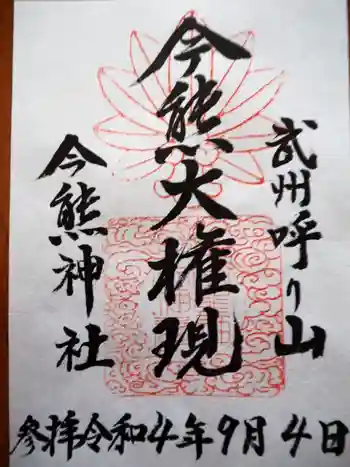 武州呼り山
今熊大権現
今熊神社
参拝令和4年9月4日